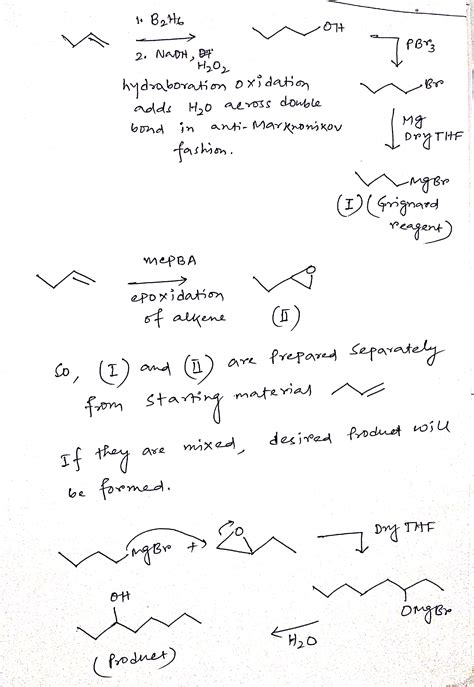 1. B2H6
2. NaOH, H2O2
OH
PBr3
hydraboration oxidation
adds H2O across double
bond in anti-Marknonikov
fashion.
Br
Mg
Dry THF
MgBr
(I) (Grignard
reagent)
mcPBA
epoxidation
of alkene
O
(II)
So, (I) and (II) are prepared separately
from starting material
If they are mixed, desired product will
be formed.
MgBr + O
Dry THF
OMgBr
H2O
OH
(Product)